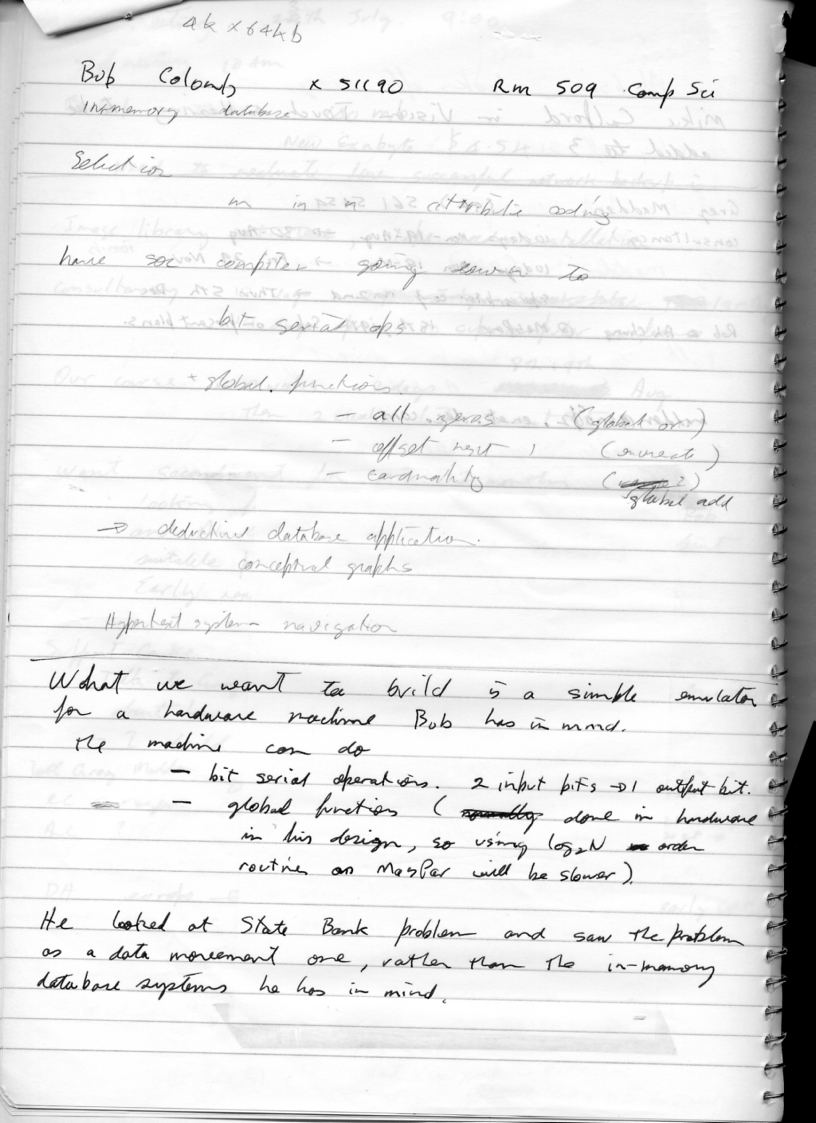 4k x 64kb
Bob Colomb x 51190 Rm 509 Comp Sci
In-memory database
Selection
m in n attribute coding
have soc computer going down to
bit serial ops
+ global functions.
- all zeros (global or)
- offset next 1 (enumerate)
- cardinality
global add
→ deductive database application.
conceptual graphs
Hypertext system navigation
What we want to build is a simple emulator
for a hardware machine Bob has in mind.
The machine can do
- bit serial operations. 2 input bits → 1 output bit.
- global function ( done in hardware
in his design, so using log2N order
routines on MasPar will be slower).
He looked at State Bank problem and saw the problem
as a data movement one, rather than the in-memory
database systems he has in mind.